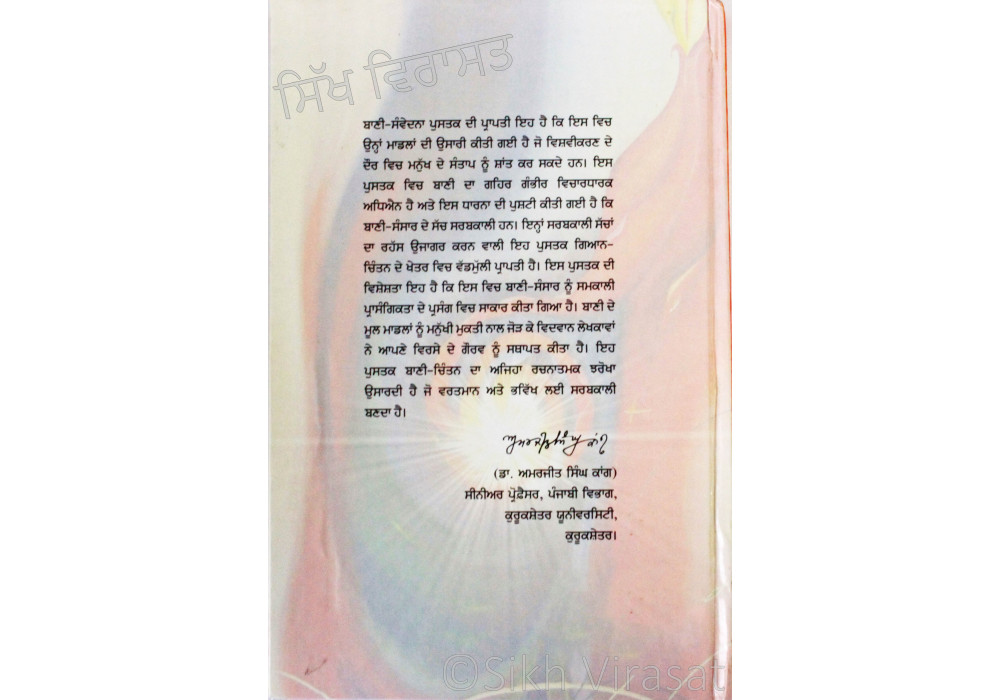 ਸਿੱਖ ਵਿਰਾਸਤ
ਬਾਣੀ-ਸੰਵੇਦਨਾ ਪੁਸਤਕ ਦੀ ਪ੍ਰਾਪਤੀ ਇਹ ਹੈ ਕਿ ਇਸ ਵਿਚ
ਉਨ੍ਹਾਂ ਮਾਡਲਾਂ ਦੀ ਉਸਾਰੀ ਕੀਤੀ ਗਈ ਹੈ ਜੋ ਵਿਸ਼ਵੀਕਰਣ ਦੇ
ਦੌਰ ਵਿਚ ਮਨੁੱਖ ਦੇ ਸੰਤਾਪ ਨੂੰ ਸ਼ਾਂਤ ਕਰ ਸਕਦੇ ਹਨ। ਇਸ
ਪੁਸਤਕ ਵਿਚ ਬਾਣੀ ਦਾ ਗਹਿਰ ਗੰਭੀਰ ਵਿਚਾਰਧਾਰਕ
ਅਧਿਐਨ ਹੈ ਅਤੇ ਇਸ ਧਾਰਨਾ ਦੀ ਪੁਸ਼ਟੀ ਕੀਤੀ ਗਈ ਹੈ ਕਿ
ਬਾਣੀ-ਸੰਸਾਰ ਦੇ ਸੱਚ ਸਰਬਕਾਲੀ ਹਨ। ਇਨ੍ਹਾਂ ਸਰਬਕਾਲੀ ਸੱਚਾਂ
ਦਾ ਰਹੱਸ ਉਜਾਗਰ ਕਰਨ ਵਾਲੀ ਇਹ ਪੁਸਤਕ ਗਿਆਨ-
ਚਿੰਤਨ ਦੇ ਖੇਤਰ ਵਿਚ ਵੱਡਮੁੱਲੀ ਪ੍ਰਾਪਤੀ ਹੈ। ਇਸ ਪੁਸਤਕ ਦੀ
ਵਿਸ਼ੇਸ਼ਤਾ ਇਹ ਹੈ ਕਿ ਇਸ ਵਿਚ ਬਾਣੀ-ਸੰਸਾਰ ਨੂੰ ਸਮਕਾਲੀ
ਪ੍ਰਾਸੰਗਿਕਤਾ ਦੇ ਪ੍ਰਸੰਗ ਵਿਚ ਸਾਕਾਰ ਕੀਤਾ ਗਿਆ ਹੈ। ਬਾਣੀ ਦੇ
ਮੂਲ ਮਾਡਲਾਂ ਨੂੰ ਮਨੁੱਖੀ ਮੁਕਤੀ ਨਾਲ ਜੋੜ ਕੇ ਵਿਦਵਾਨ ਲੇਖਕਾਵਾਂ
ਨੇ ਆਪਣੇ ਵਿਰਸੇ ਦੇ ਗੌਰਵ ਨੂੰ ਸਥਾਪਤ ਕੀਤਾ ਹੈ। ਇਹ
ਪੁਸਤਕ ਬਾਣੀ-ਚਿੰਤਨ ਦਾ ਅਜਿਹਾ ਰਚਨਾਤਮਕ ਝਰੋਖਾ
ਉਸਾਰਦੀ ਹੈ ਜੋ ਵਰਤਮਾਨ ਅਤੇ ਭਵਿੱਖ ਲਈ ਸਰਬਕਾਲੀ
ਬਣਦਾ ਹੈ।
ਅਮਰਜੀਤ ਸਿੰਘ ਕਾਂਗ
(ਡਾ. ਅਮਰਜੀਤ ਸਿੰਘ ਕਾਂਗ)
ਸੀਨੀਅਰ ਪ੍ਰੋਫ਼ੈਸਰ, ਪੰਜਾਬੀ ਵਿਭਾਗ,
ਕੁਰੂਕਸ਼ੇਤਰ ਯੂਨੀਵਰਸਿਟੀ,
ਕੁਰੂਕਸ਼ੇਤਰ।
©Sikh Virasat